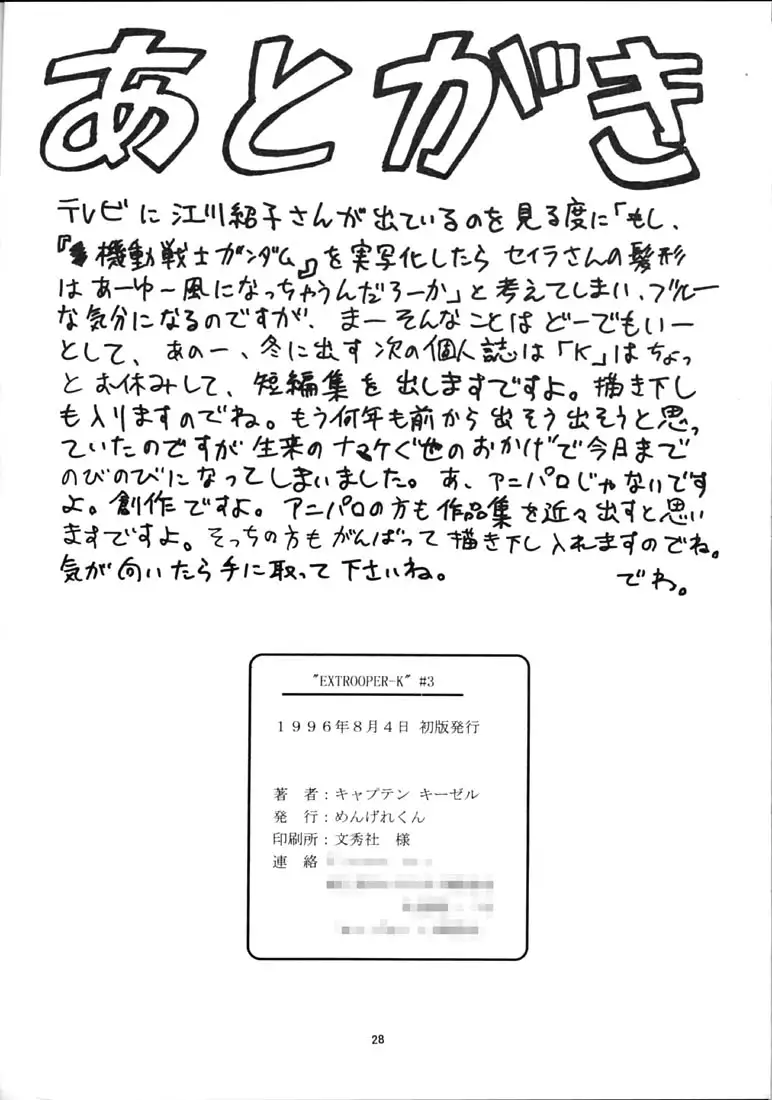 あとがき
テレビに江川紹子さんが出ているのを見る度に「もし、
『機動戦士ガンダム』を実写化したらセイラさんの髪形
はあーゆ〜風になっちゃうんだろーか」と考えてしまい、ブルー
な気分になるのですが、まーそんなことはどーでもいー
として、あのー、冬に出す次の個人誌は「K」はちょっ
とお休みして、短編集を出しますですよ。描き下し
も入りますのでね。もう何年も前から出そう出そうと思っ
ていたのですが生来のナマケぐせのおかげで今日まで
のびのびになってしまいました。あ、アニパロじゃないです
よ。創作ですよ。アニパロの方も作品集を近々出すと思い
ますですよ。そっちの方もがんばって描き下し入れますのでね。
気が向いたら手に取って下さいね。 でわ。
"EXTROOPER-K" #3
1996年8月4日 初版発行
著 者：キャプテン キーゼル
発 行：めんげれくん
印刷所：文秀社 様
連 絡
28